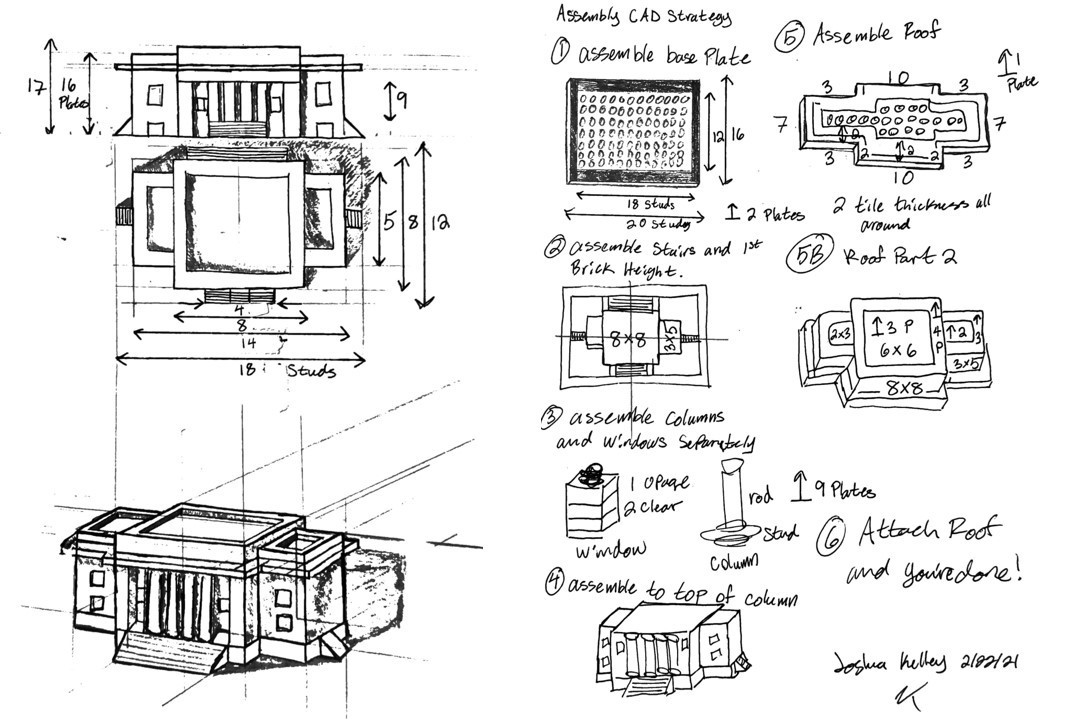 17
16
Plates
9
5
8
12
4
8
14
18 Studs
Assembly CAD Strategy
1 assemble base Plate
12
16
18 Studs
20 Studs
2 Plates
2 assemble Stairs and 1st
Brick Height.
8x8
3x5
3 assemble Columns
and Windows Separately
1 opaqe
2 clear
Window
rod
Stud
Column
9 Plates
4 assemble to top of column
5 Assemble Roof
1
Plate
3
10
3
7
7
2
3
2
2
2
3
10
2 tile thickness all
around
5B Roof Part 2
2x3
3 P
6x6
4
P
2
3
3x5
8x8
6 Attach Roof
and you're done!
Joshua Kelley 2/22/21